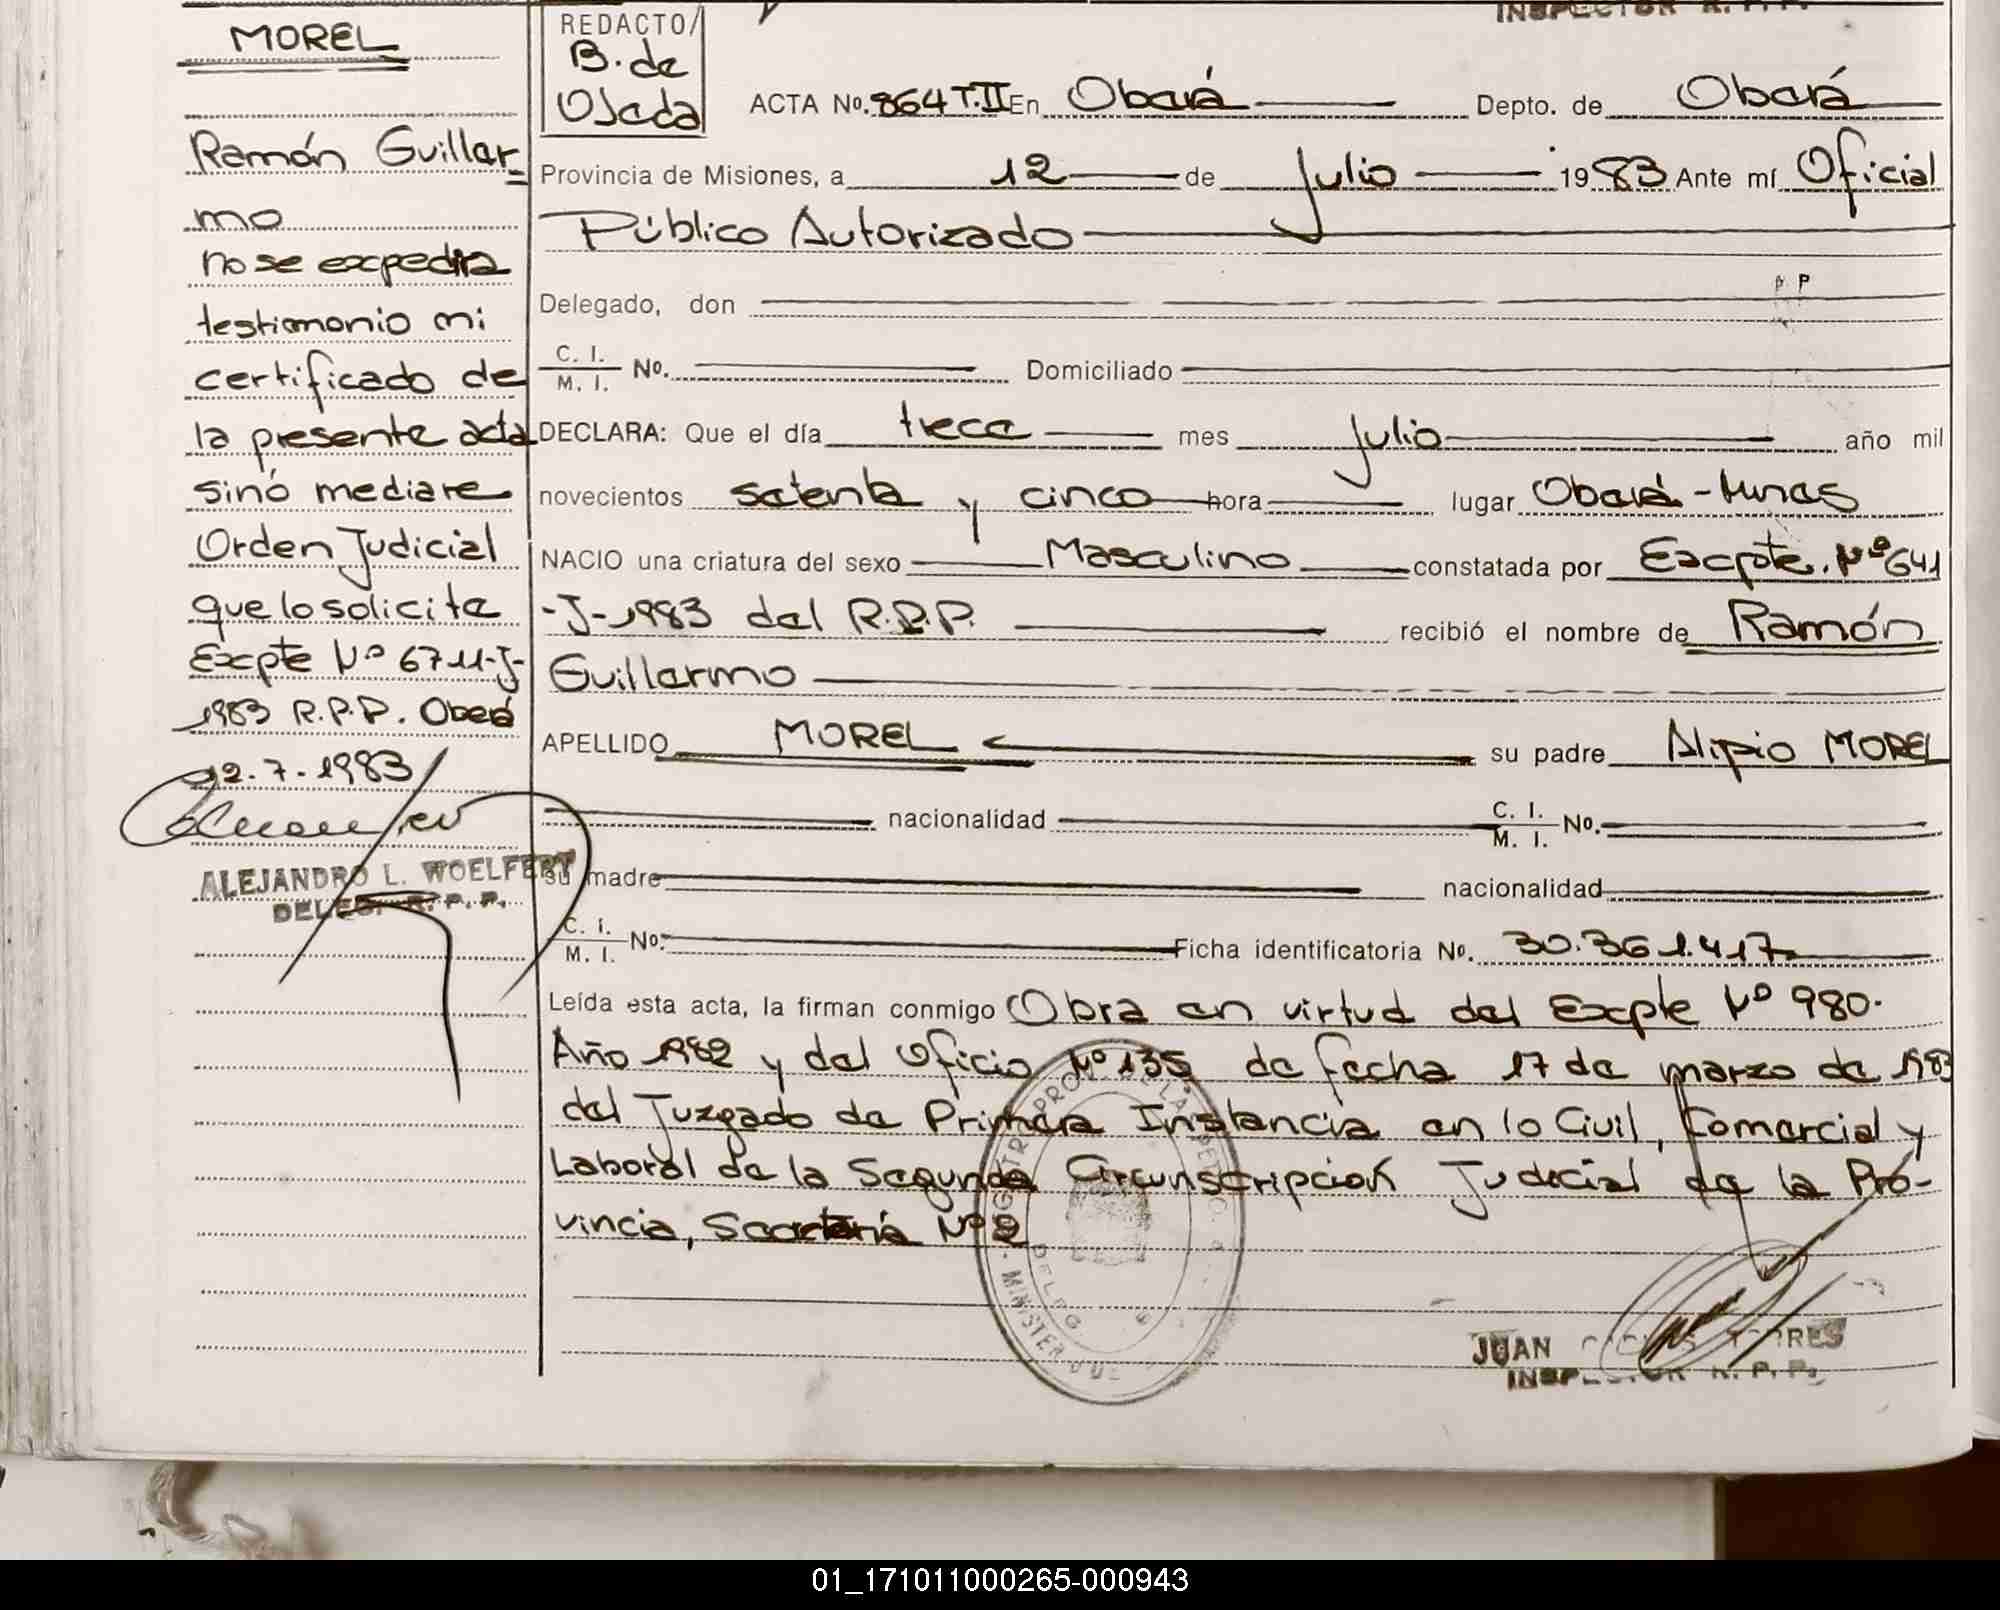 INSPECTOR R. P. P.
MOREL
Ramón Guiller=
mo
no se expedira
testimonio ni
certificado de
la presente acta
sinó mediare
Orden Judicial
que lo solicite
Expte Nº 6711-J-
1983 R.P.P. Oberá
12.7.1983
ALEJANDRO L. WOELFERT
DELEG. R. P. P.
REDACTO/
B. de
Ojeda
ACTA No. 864 T.II En Oberá Depto. de Oberá
Provincia de Misiones, a 12 de Julio 1983 Ante mí Oficial
Público Autorizado
P P
Delegado, don
C. I.
M. I. No. Domiciliado
DECLARA: Que el día trece mes Julio año mil
novecientos setenta y cinco hora lugar Oberá - Mnes
NACIO una criatura del sexo Masculino constatada por Expte. Nº 641
-J-1983 del R.P.P. recibió el nombre de Ramón
Guillermo
APELLIDO MOREL su padre Alipio MOREL
nacionalidad C. I.
M. I. No.
su madre nacionalidad
C. I.
M. I. No. Ficha identificatoria No. 30.361.417
Leída esta acta, la firman conmigo Obra en virtud del Expte Nº 980.
Año 1982 y del Oficio Nº 135 de fecha 17 de marzo de 1983
del Juzgado de Primera Instancia en lo Civil, Comercial y
Laboral de la Segunda Circunscripcion Judicial de la Pro-
vincia, Secretaría Nº 2
JUAN CARLOS TORRES
INSPECTOR R. P. P.
01_171011000265-000943